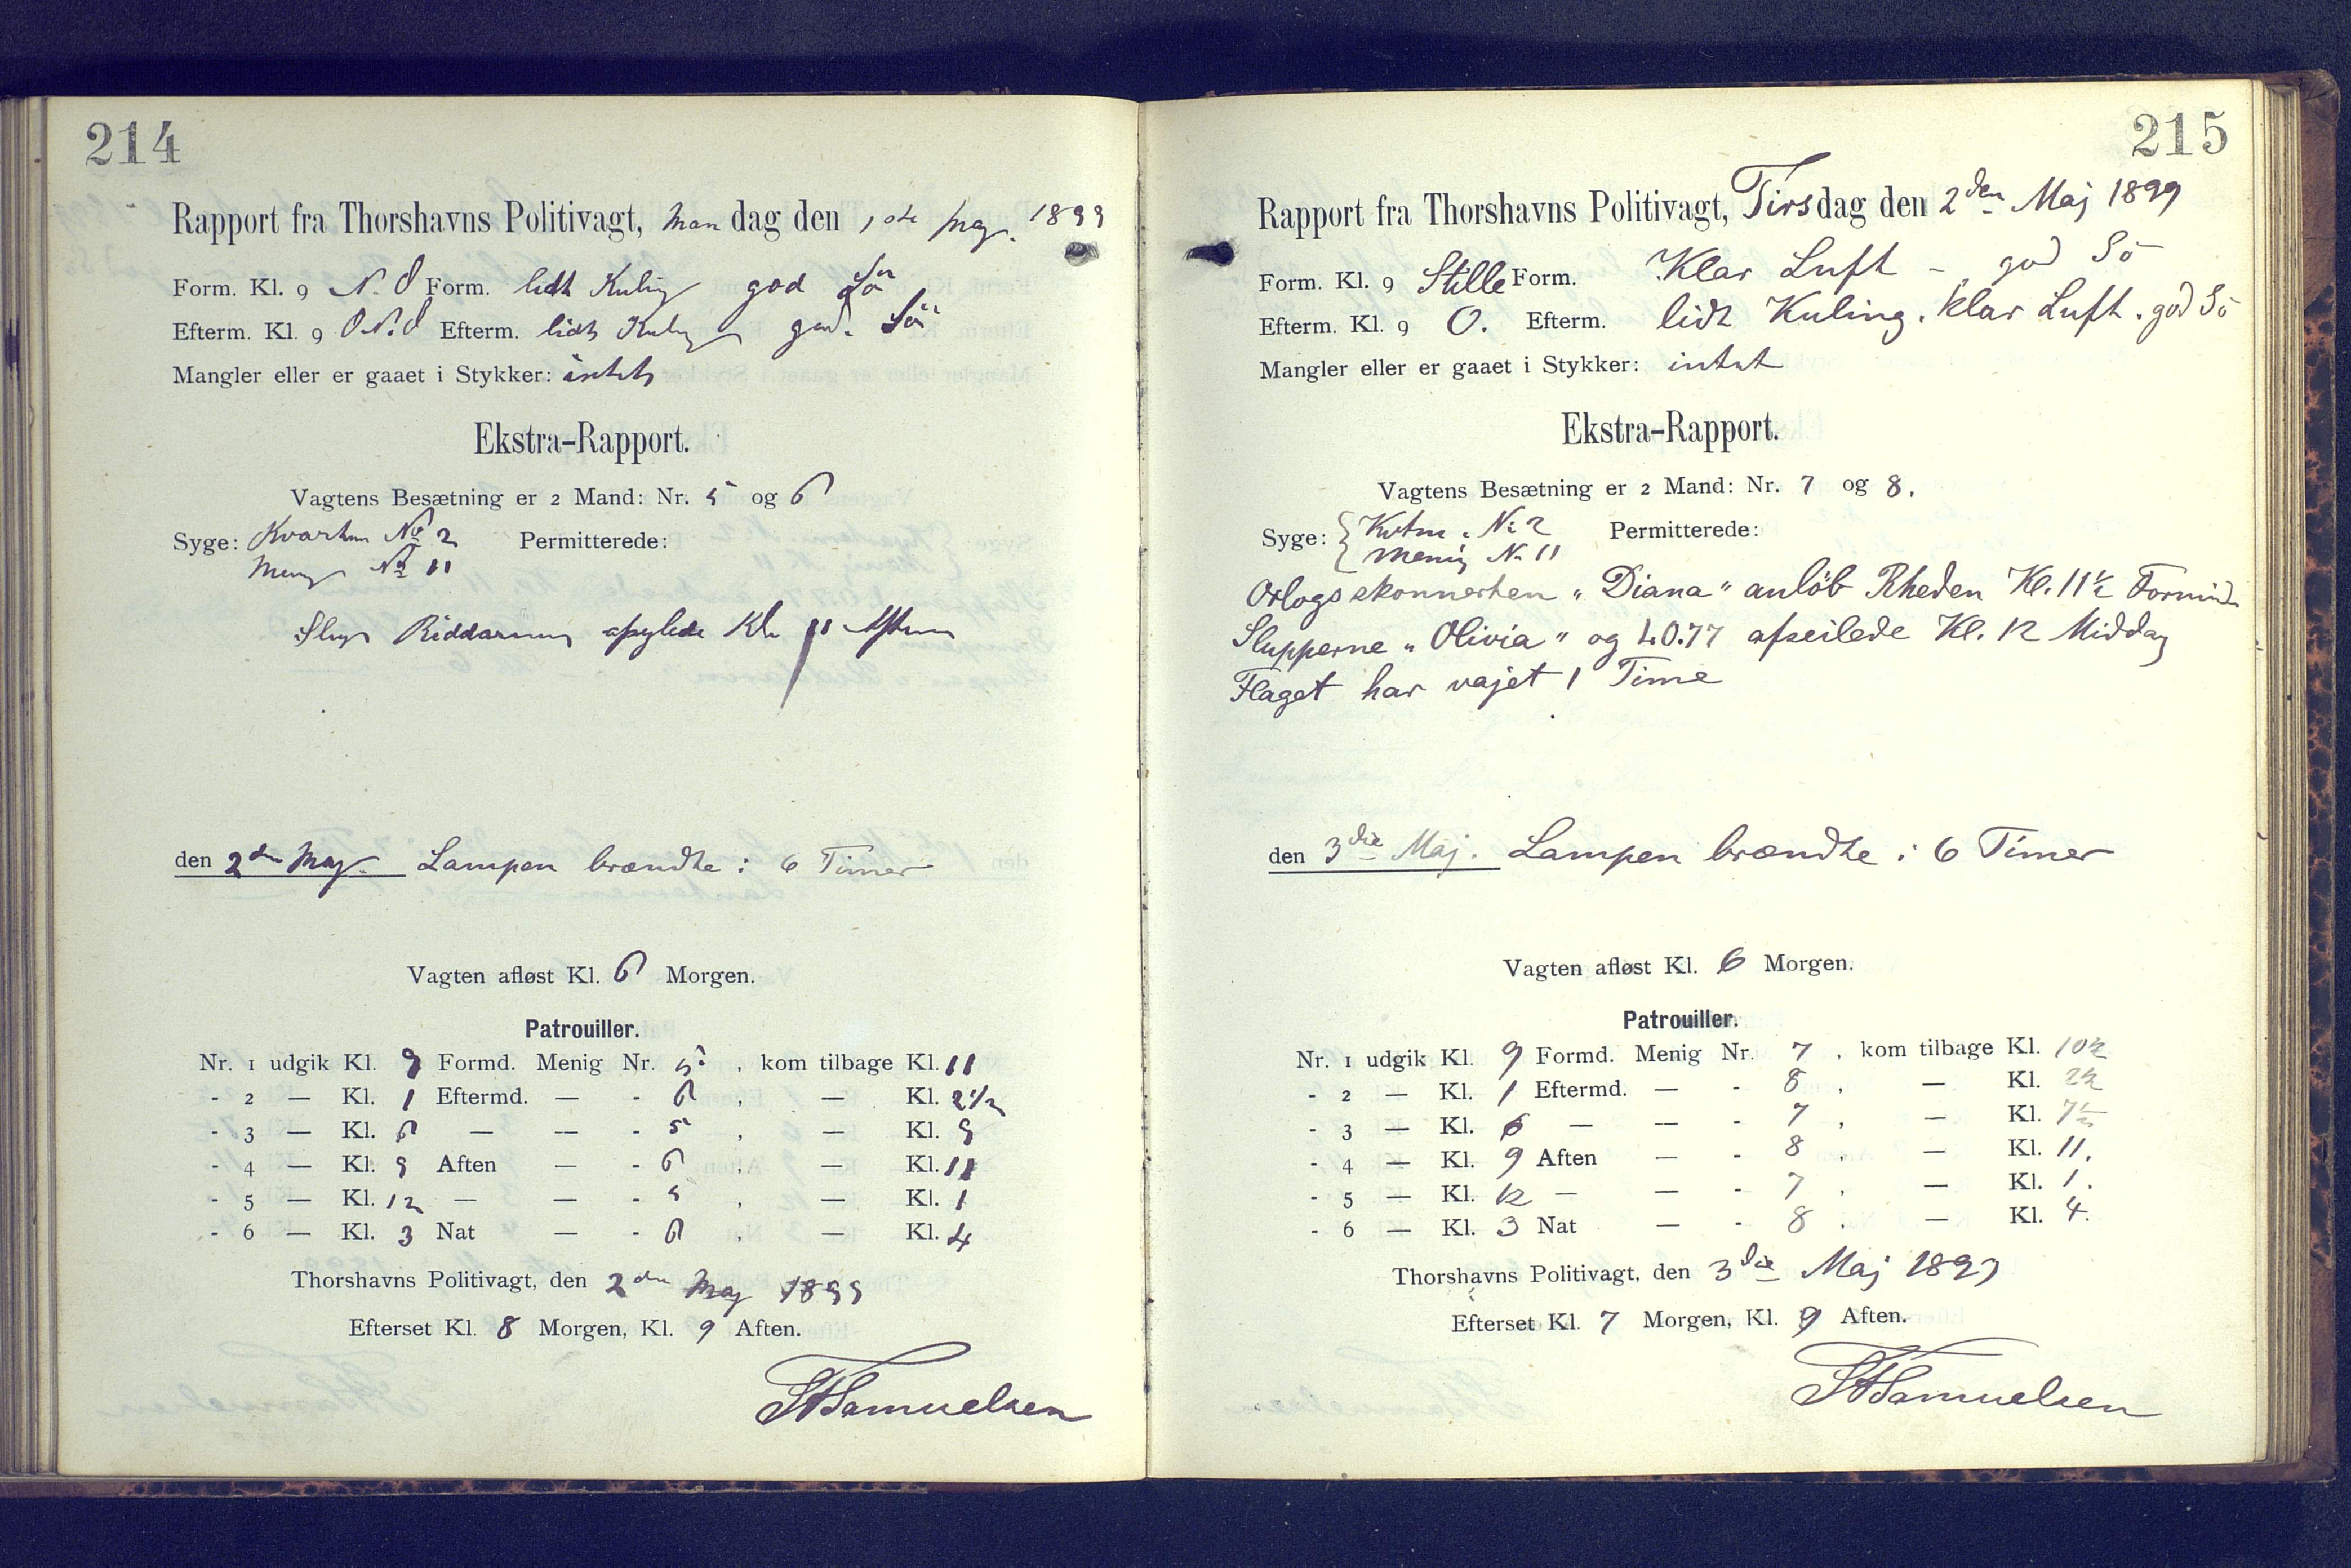 214
Rapport fra Thorshavns Politivagt, Mandag den 1ste Maj. 1899
Form. Kl. 9 N.O Form. lidt Kuling god Sö
Efterm. Kl. 9 O.N.O Efterm. lidt Kuling god. Sö
Mangler eller er gaaet i Stykker: intet
Ekstra-Rapport.
Vagtens Besætning er 2 Mand: Nr. 5 og 6
Syge: Kvartm No 2 Permitterede:
Menig No 11
Slup Riddarin afsejlede Kl. 11 Aften
den 2den Maj. Lampen brændte: 6 Timer
Vagten afløst Kl. 6 Morgen.
Patrouiller.
Nr. 1 udgik Kl. 9 Formd. Menig Nr. 5 , kom tilbage Kl. 11
- 2 — Kl. 1 Eftermd. — - 6 , — Kl. 2 1/2
- 3 — Kl. 6 — — - 5 , — Kl. 9
- 4 — Kl. 9 Aften — - 6 , — Kl. 11
- 5 — Kl. 12 — — - 5 , — Kl. 1
- 6 — Kl. 3 Nat — - 6 , — Kl. 4
Thorshavns Politivagt, den 2den Maj 1899
Efterset Kl. 8 Morgen, Kl. 9 Aften.
Samuelsen
215
Rapport fra Thorshavns Politivagt, Tirsdag den 2den Maj 1899
Form. Kl. 9 Stille Form. Klar Luft - god Sö
Efterm. Kl. 9 O. Efterm. lidt Kuling. klar Luft. god Sö
Mangler eller er gaaet i Stykker: intet
Ekstra-Rapport.
Vagtens Besætning er 2 Mand: Nr. 7 og 8.
Syge: Kvtm. N: 2 Permitterede:
Menig N. 11
Orlogsskonnerten "Diana" anlöb Rheden Kl. 11½ Formid.
Slupperne "Olivia" og LO.77 afseilede Kl. 12 Middag
Flaget har vajet 1 Time
den 3die Maj. Lampen brændte: 6 Timer
Vagten afløst Kl. 6 Morgen.
Patrouiller.
Nr. 1 udgik Kl. 9 Formd. Menig Nr. 7 , kom tilbage Kl. 10½
- 2 — Kl. 1 Eftermd. — - 8 , — Kl. 2½
- 3 — Kl. 6 — — - 7 , — Kl. 7½
- 4 — Kl. 9 Aften — - 8 , — Kl. 11.
- 5 — Kl. 12 — — - 7 , — Kl. 1.
- 6 — Kl. 3 Nat — - 8 , — Kl. 4.
Thorshavns Politivagt, den 3die Maj 1899
Efterset Kl. 7 Morgen, Kl. 9 Aften.
Samuelsen